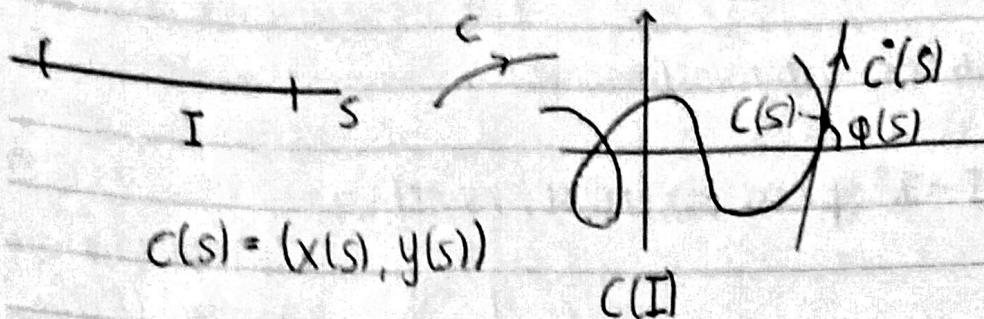 I
S
C
C(S)
Ċ(S)
φ(S)
C(s) = (x(s), y(s))
C(I)